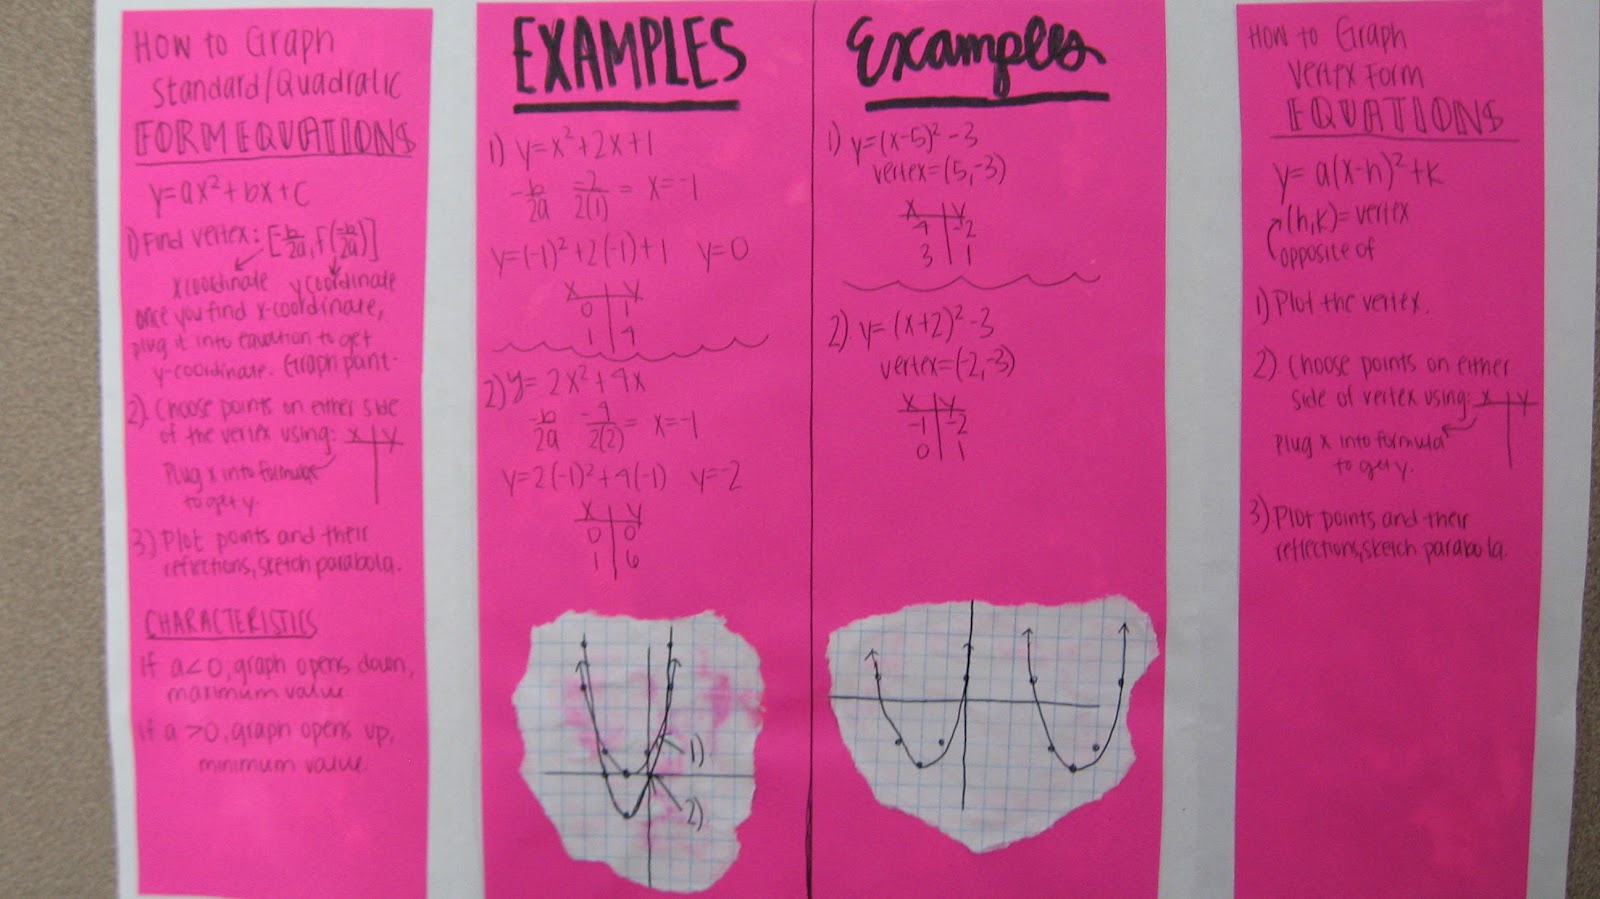 How to Graph
Standard/Quadratic
FORM EQUATIONS
y=ax²+bx+c
1) Find vertex: [-b/2a, f(-b/2a)]
x coordinate y coordinate
once you find x-coordinate,
plug it into equation to get
y-coordinate. Graph point.
2). Choose points on either side
of the vertex using: x | y
Plug x into formula
to get y.
3) Plot points and their
reflections, sketch parabola.
CHARACTERISTICS
If a<0, graph opens down,
maximum value.
If a >0, graph opens up,
minimum value.
EXAMPLES
1) y=x²+2x+1
-b/2a -2/2(1) = x=-1
y=(-1)²+2(-1)+1 y=0
x | y
0 | 1
1 | 4
2) y= 2x²+4x
-b/2a -4/2(2) = x=-1
y=2(-1)²+4(-1) y=-2
x | y
0 | 0
1 | 6
1)
2)
Examples
1) y=(x-5)²-3
vertex=(5,-3)
x | y
4 | -2
3 | 1
2). y= (x+2)²-3
vertex=(-2,-3)
x | y
-1 | -2
0 | 1
How to Graph
Vertex Form
EQUATIONS
y= a(x-h)²+k
(h,k)= vertex
opposite of
1) Plot the vertex.
2) Choose points on either
side of vertex using: x | y
Plug x into formula
to get y.
3) Plot points and their
reflections, sketch parabola.